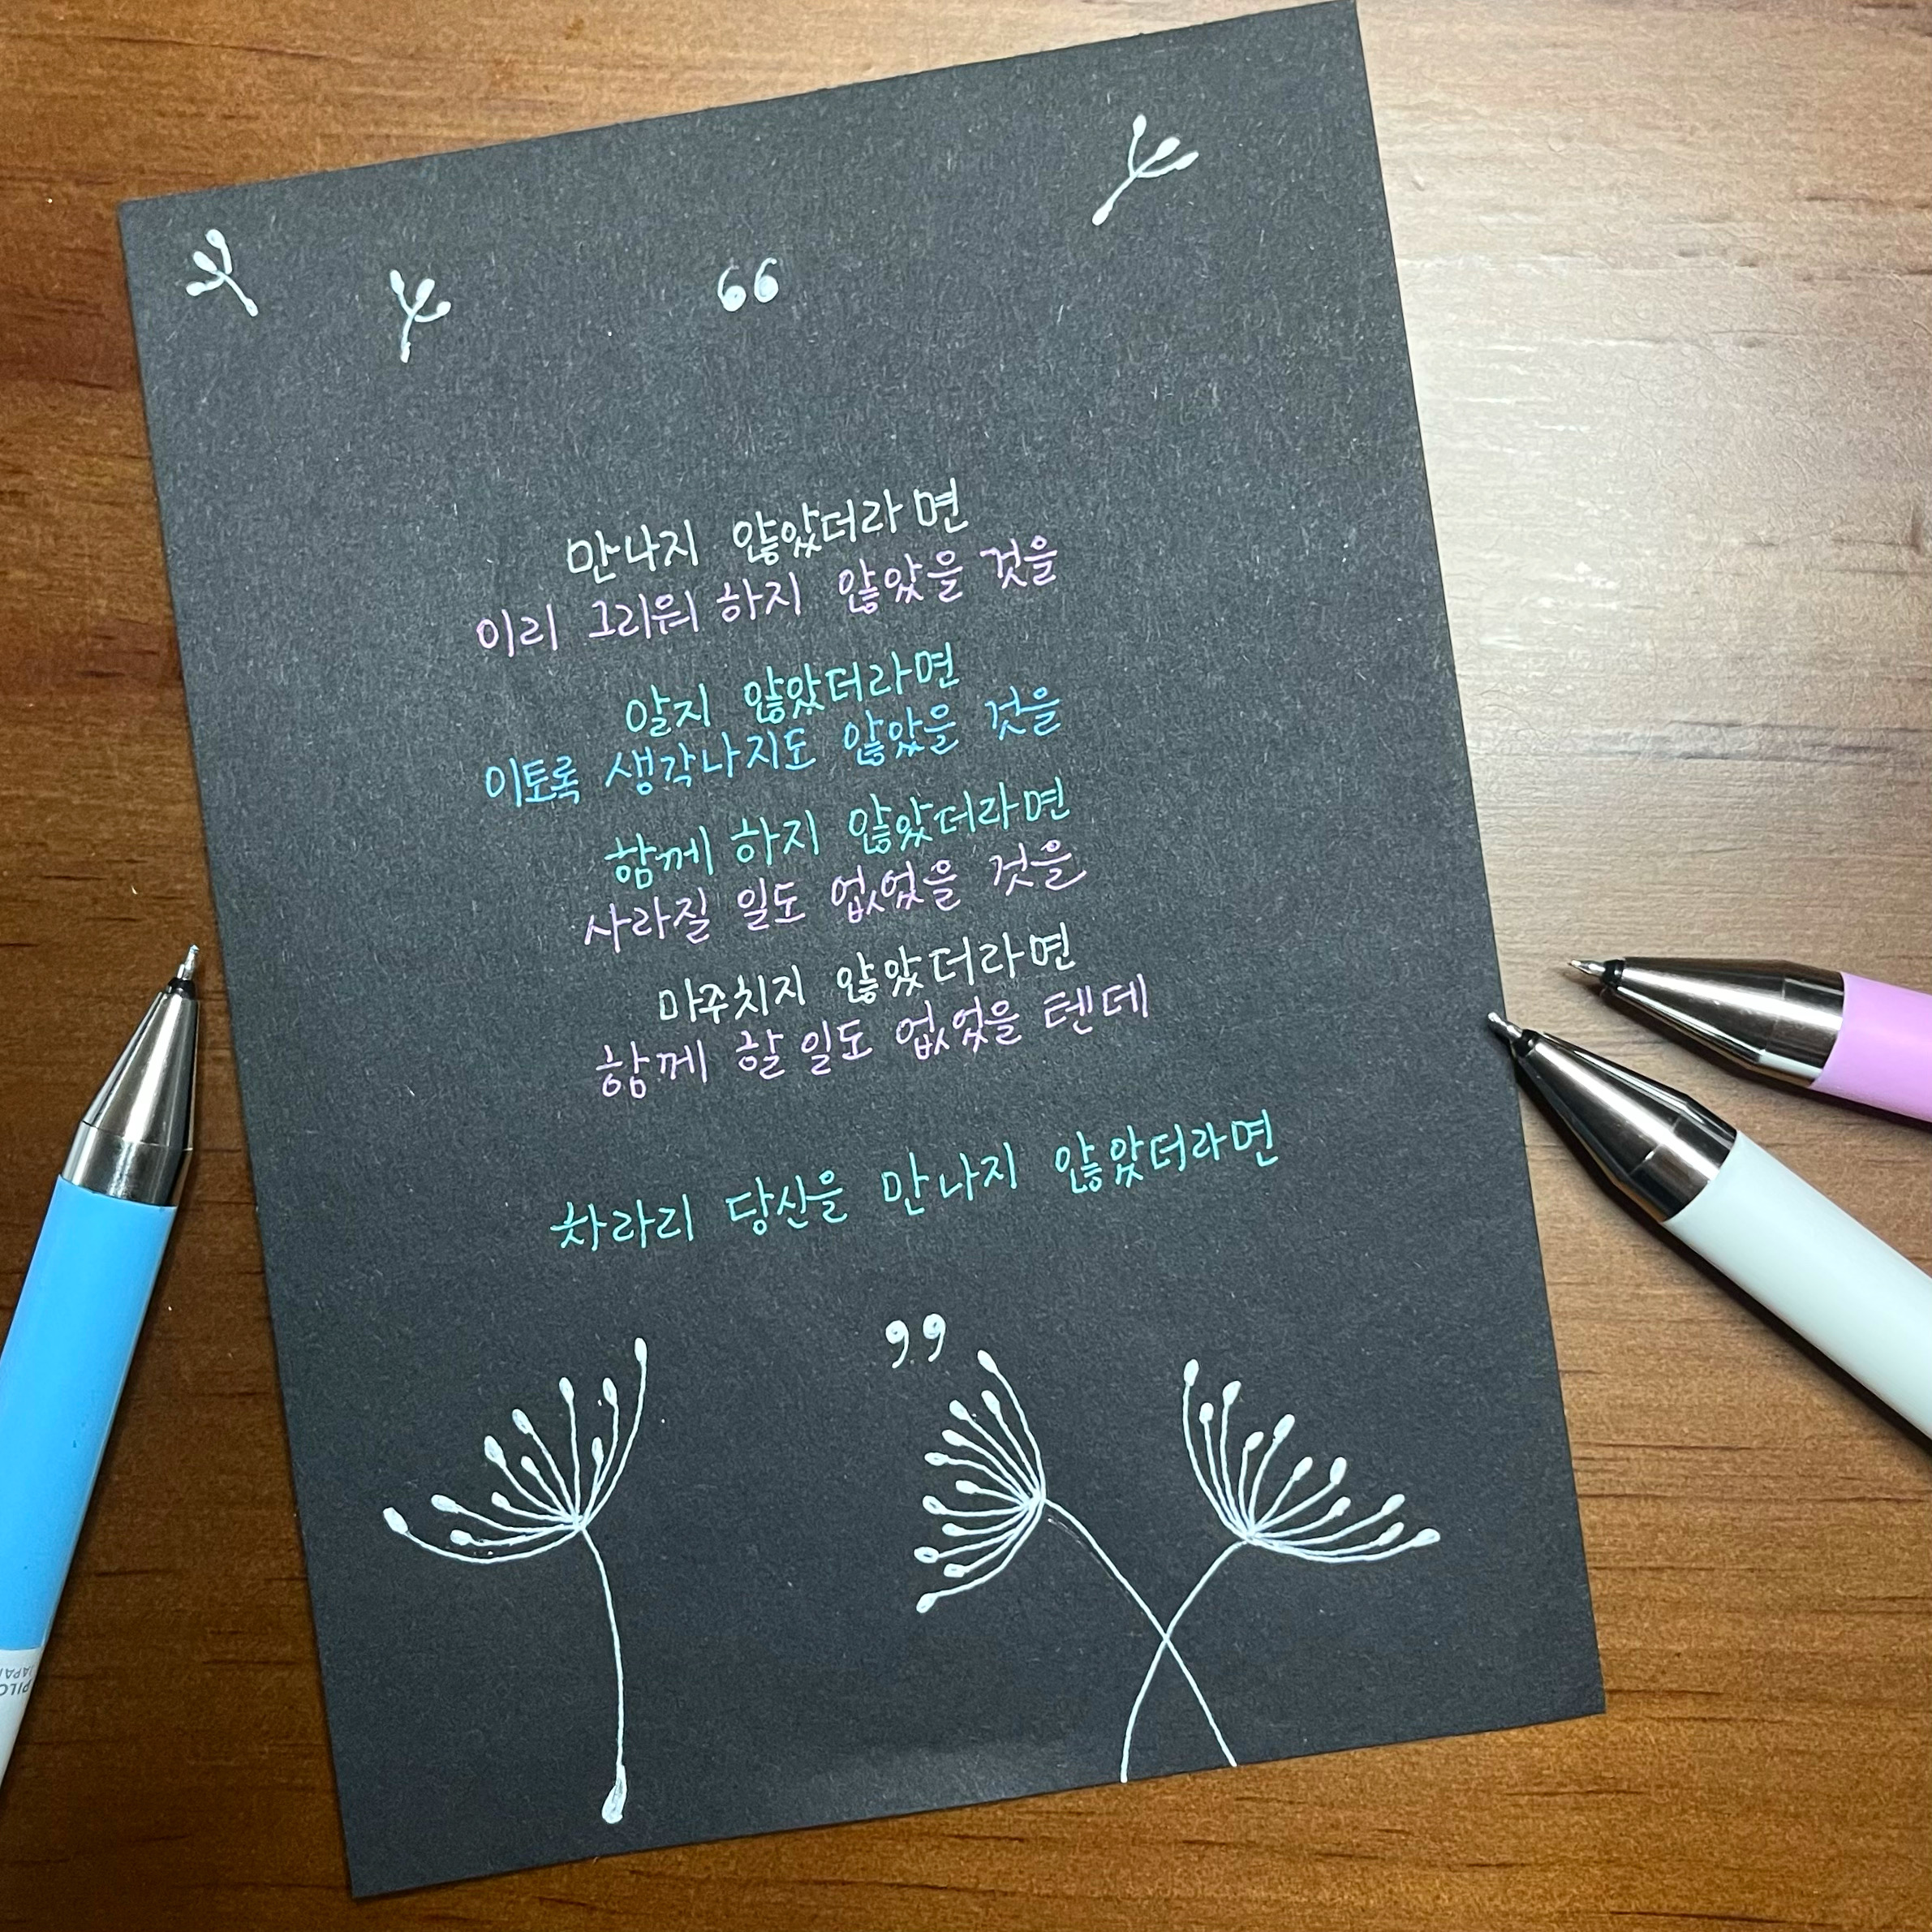 “
만나지 않았더라면
이리 그리워 하지 않았을 것을
알지 않았더라면
이토록 생각나지도 않았을 것을
함께 하지 않았더라면
사라질 일도 없었을 것을
마주치지 않았더라면
함께 할 일도 없었을 텐데
차라리 당신을 만나지 않았더라면
”